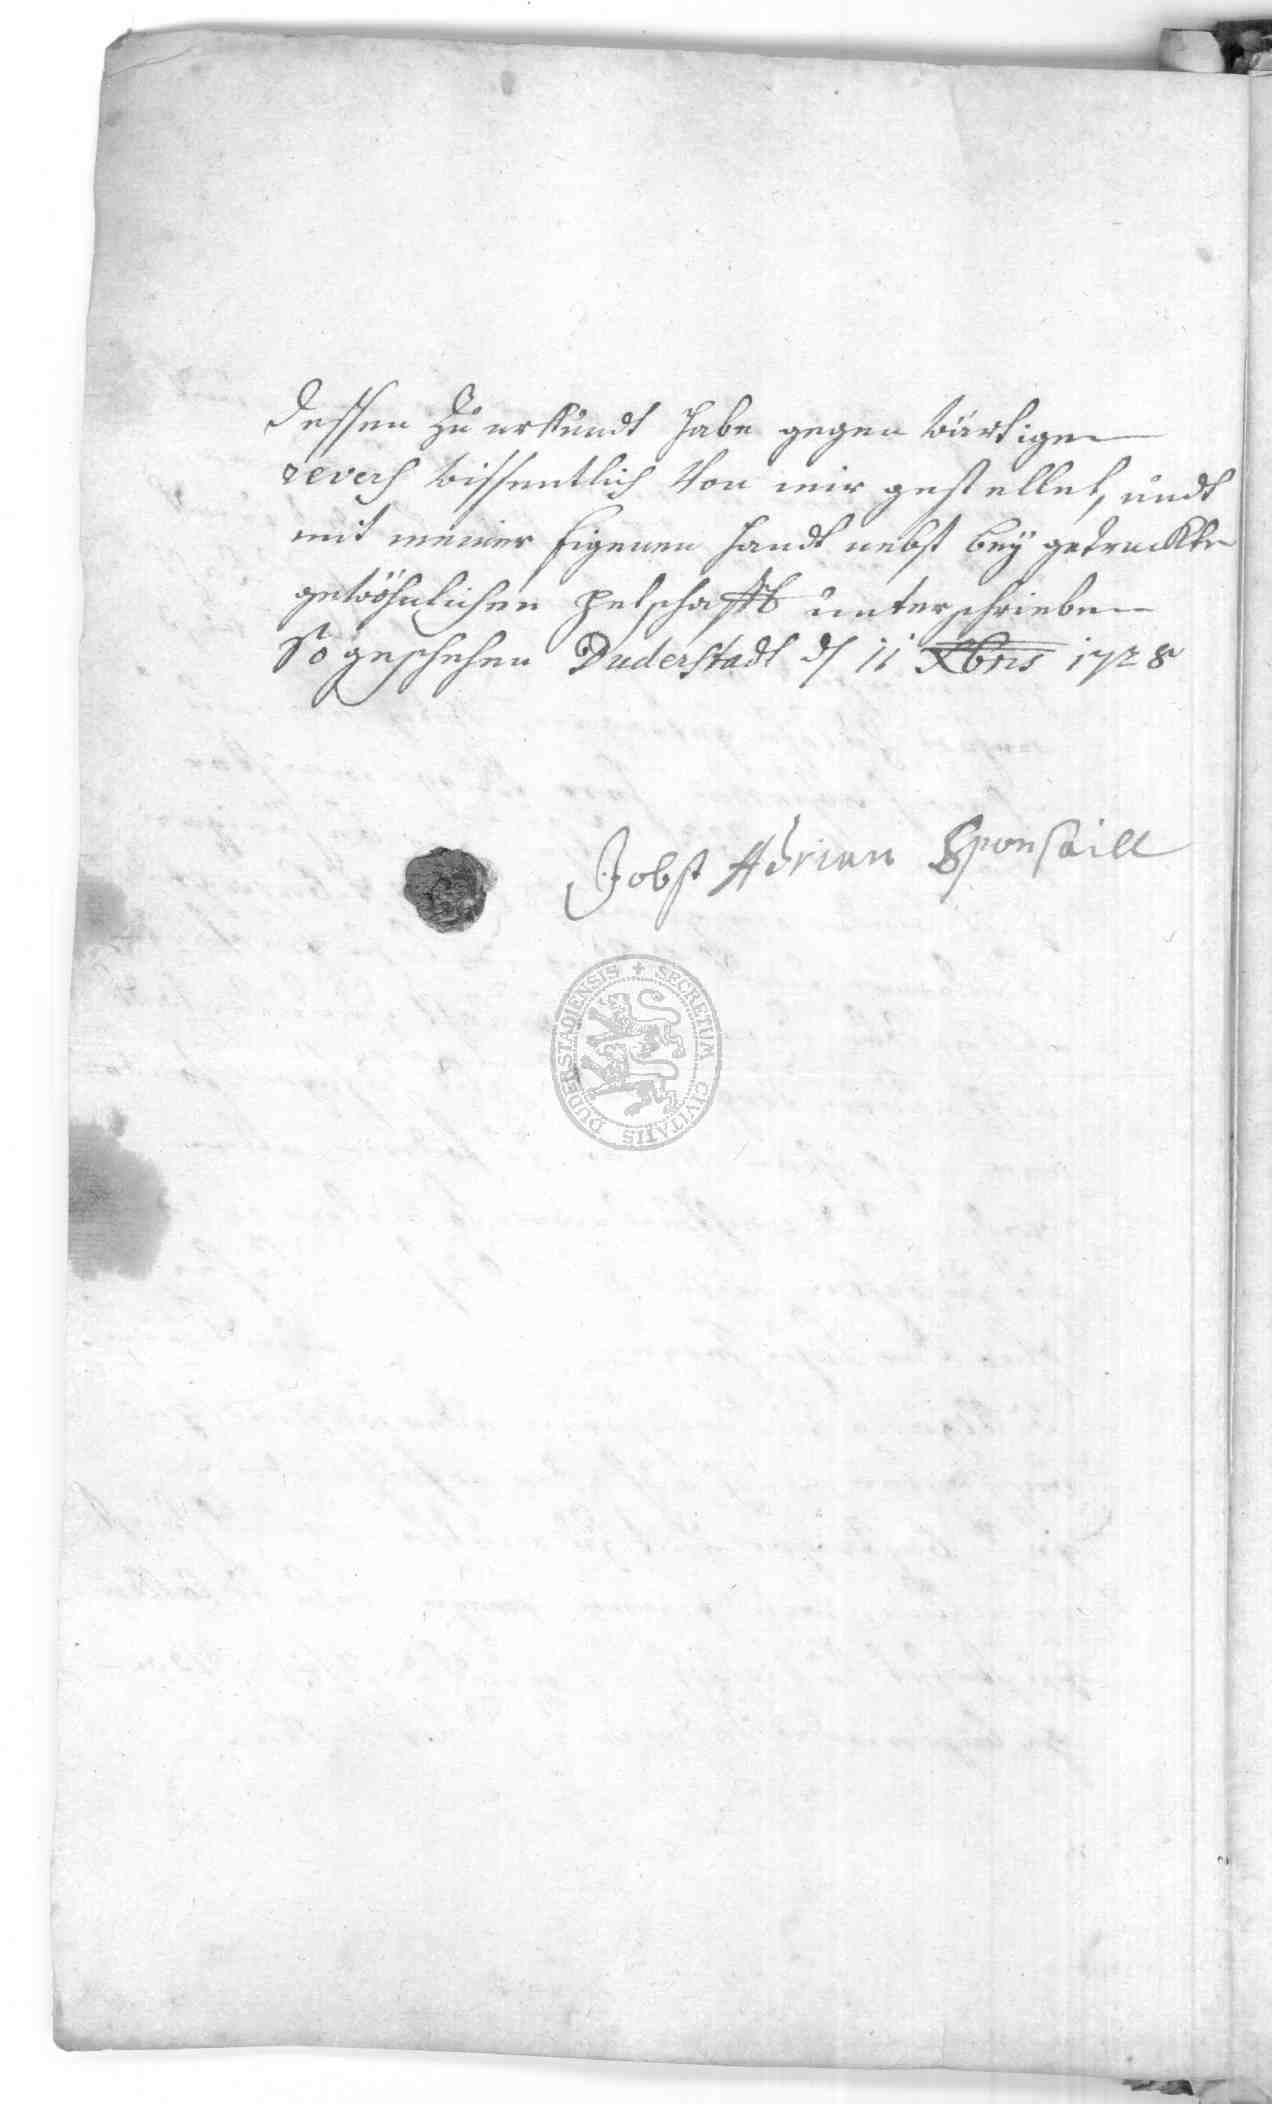 dessen zu urkundt habe gegenwärtigen
revers wissentlich von mir gestellet, undt
mit meiner Eigenen Handt nebst bey getruckten
gewöhnlichen petschafft unterschrieben
So geschehen Duderstadt d 11 Xbris 1728
Jobst Adrian Sponsaill
SECRETUM CIVITATIS DUDERSTADIENSIS